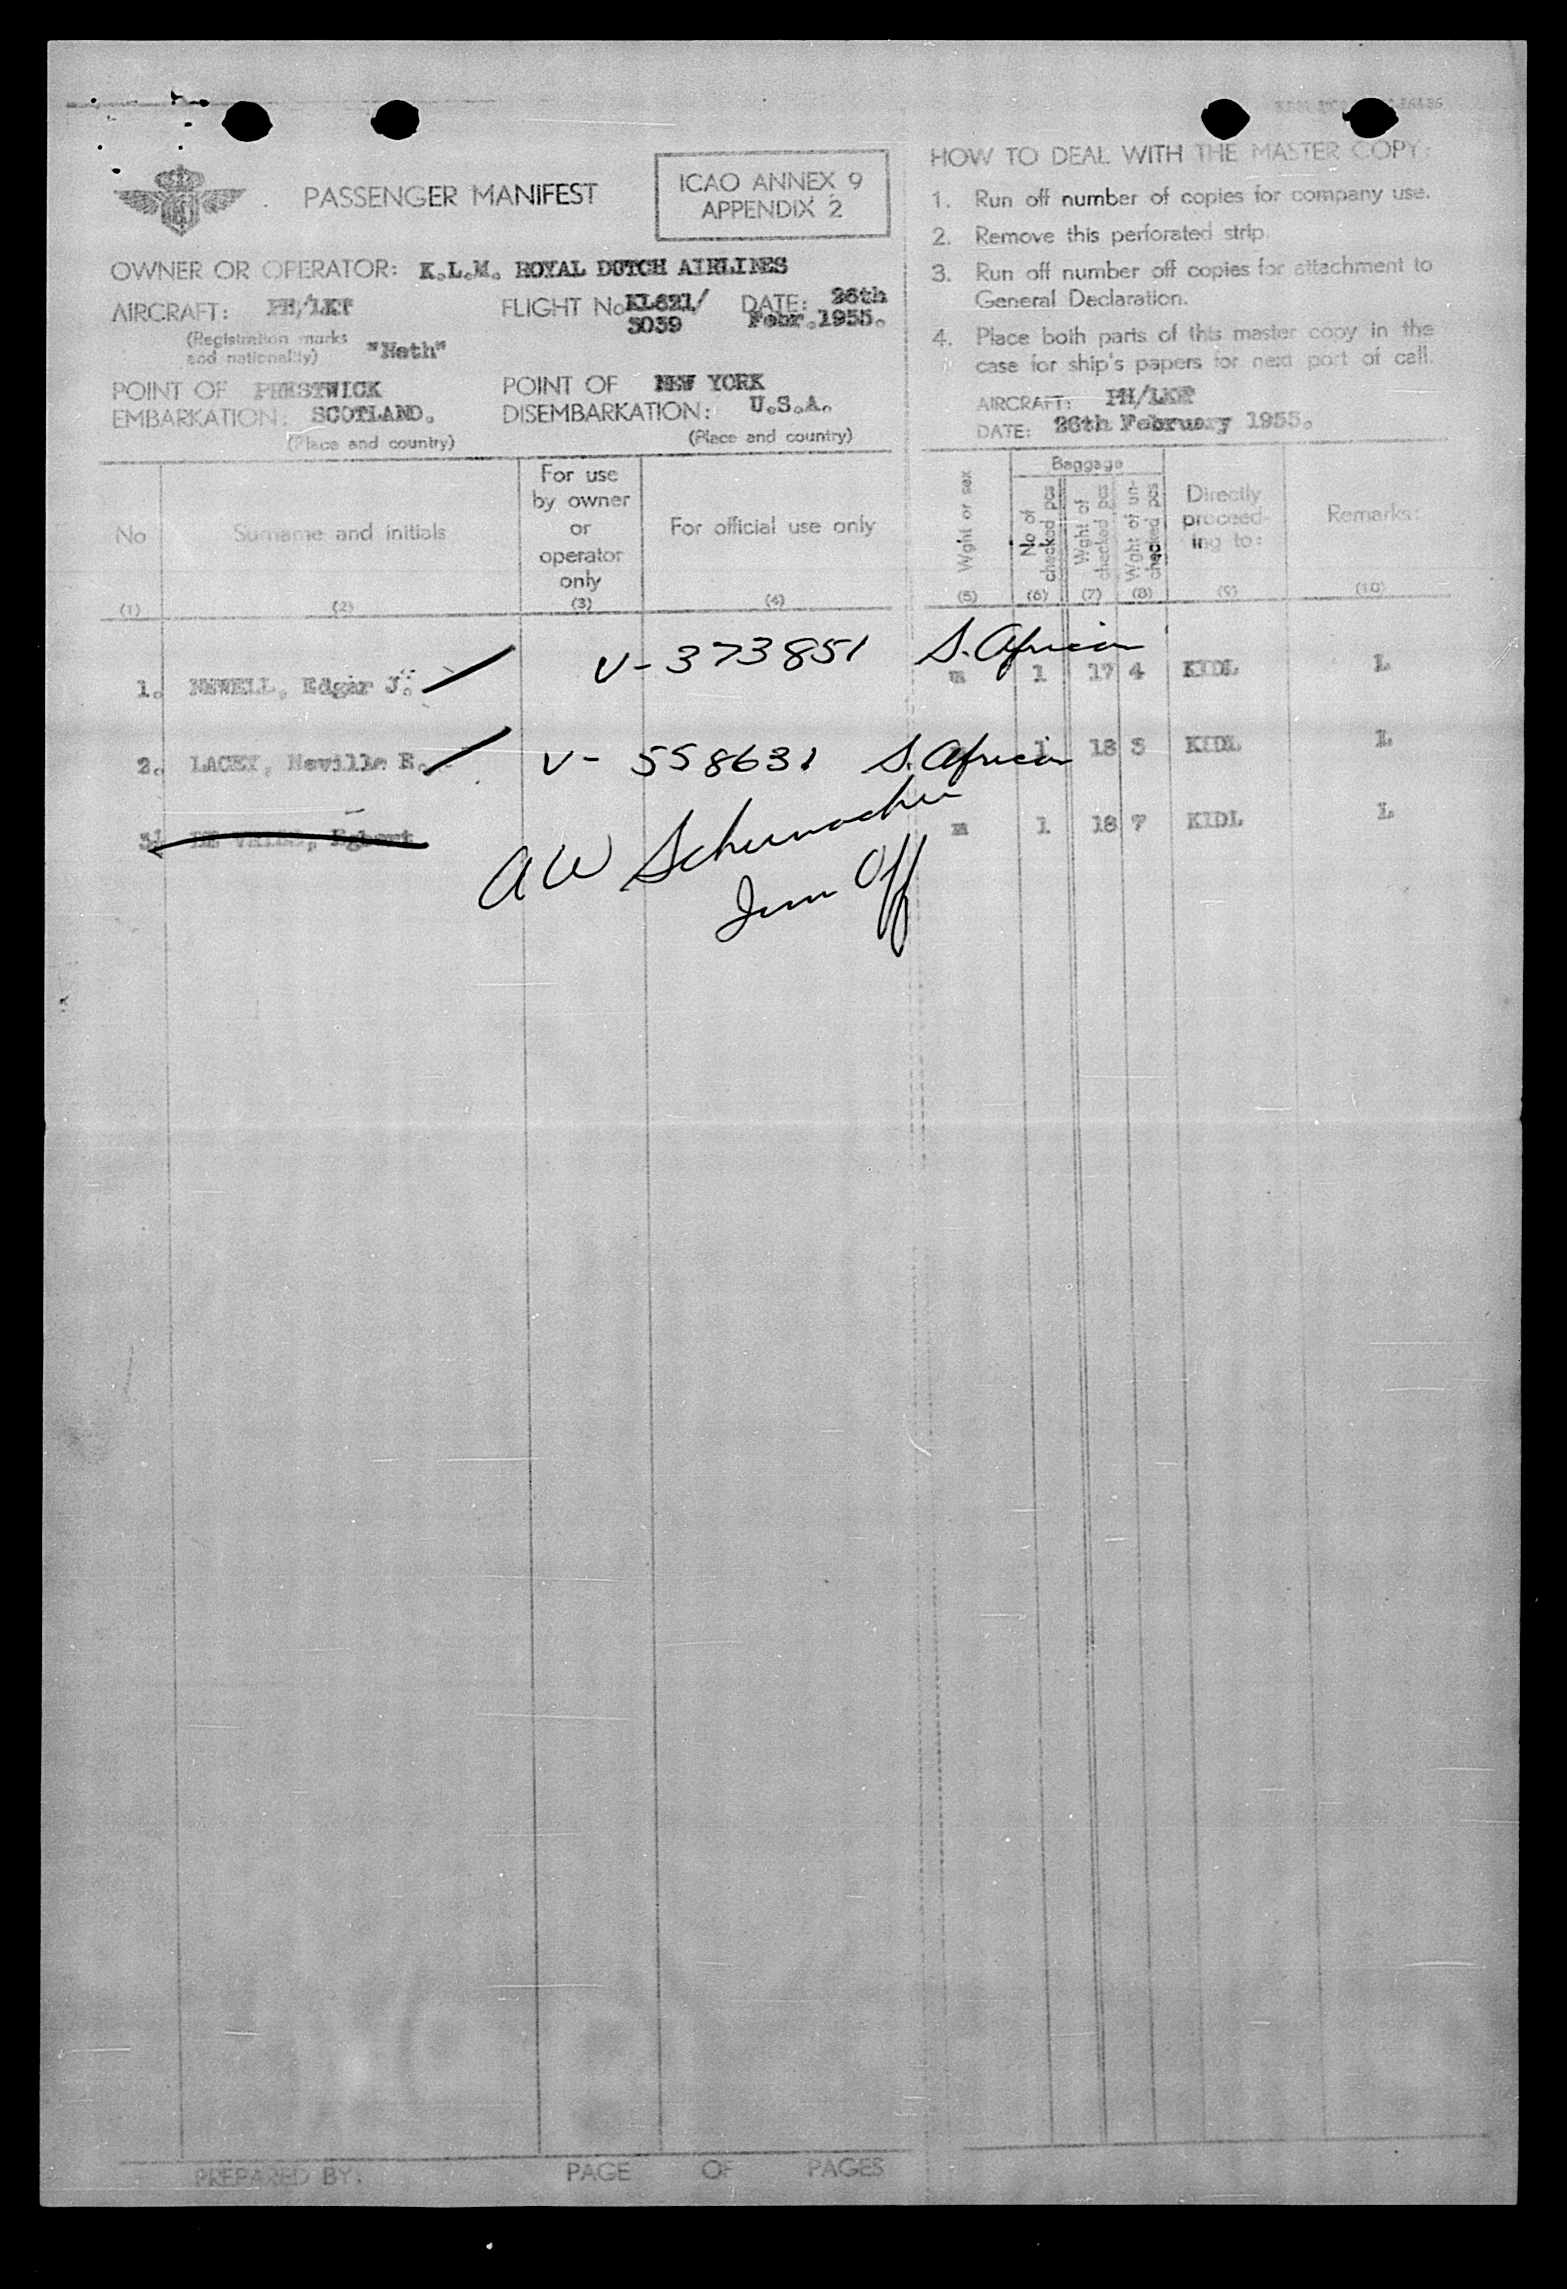 PASSENGER MANIFEST
ICAO ANNEX 9
APPENDIX 2
OWNER OR OPERATOR: K.L.M. ROYAL DUTCH AIRLINES
AIRCRAFT: PH/LKT
(Registration marks
and nationality) "Neth"
FLIGHT No KL621/
3039
DATE: 26th
Febr.1955.
POINT OF PRESTWICK
EMBARKATION: SCOTLAND.
(Place and country)
POINT OF NEW YORK
DISEMBARKATION: U.S.A.
(Place and country)
HOW TO DEAL WITH THE MASTER COPY:
1. Run off number of copies for company use.
2. Remove this perforated strip.
3. Run off number off copies for attachment to
General Declaration.
4. Place both parts of this master copy in the
case for ship's papers for next port of call.
AIRCRAFT: PH/LKT
DATE: 26th February 1955.
No
(1)
Surname and initials
(2)
For use
by owner
or
operator
only
(3)
For official use only
(4)
Wght or sex
(5)
Baggage
No of
checked pcs
(6)
Wght of
checked pcs
(7)
Wght of un-
checked pcs
(8)
Directly
proceed-
ing to:
(9)
Remarks:
(10)
1. NEWELL, Edgar J. V-373851 S. African m 1 17 4 KIDL L
2. LACEY, Neville R. V-558631 S. African 1 18 5 KIDL L
3. DE Egbert m 1 18 7 KIDL L
A W Schumacher
Imm Off
PREPARED BY.
PAGE OF PAGES